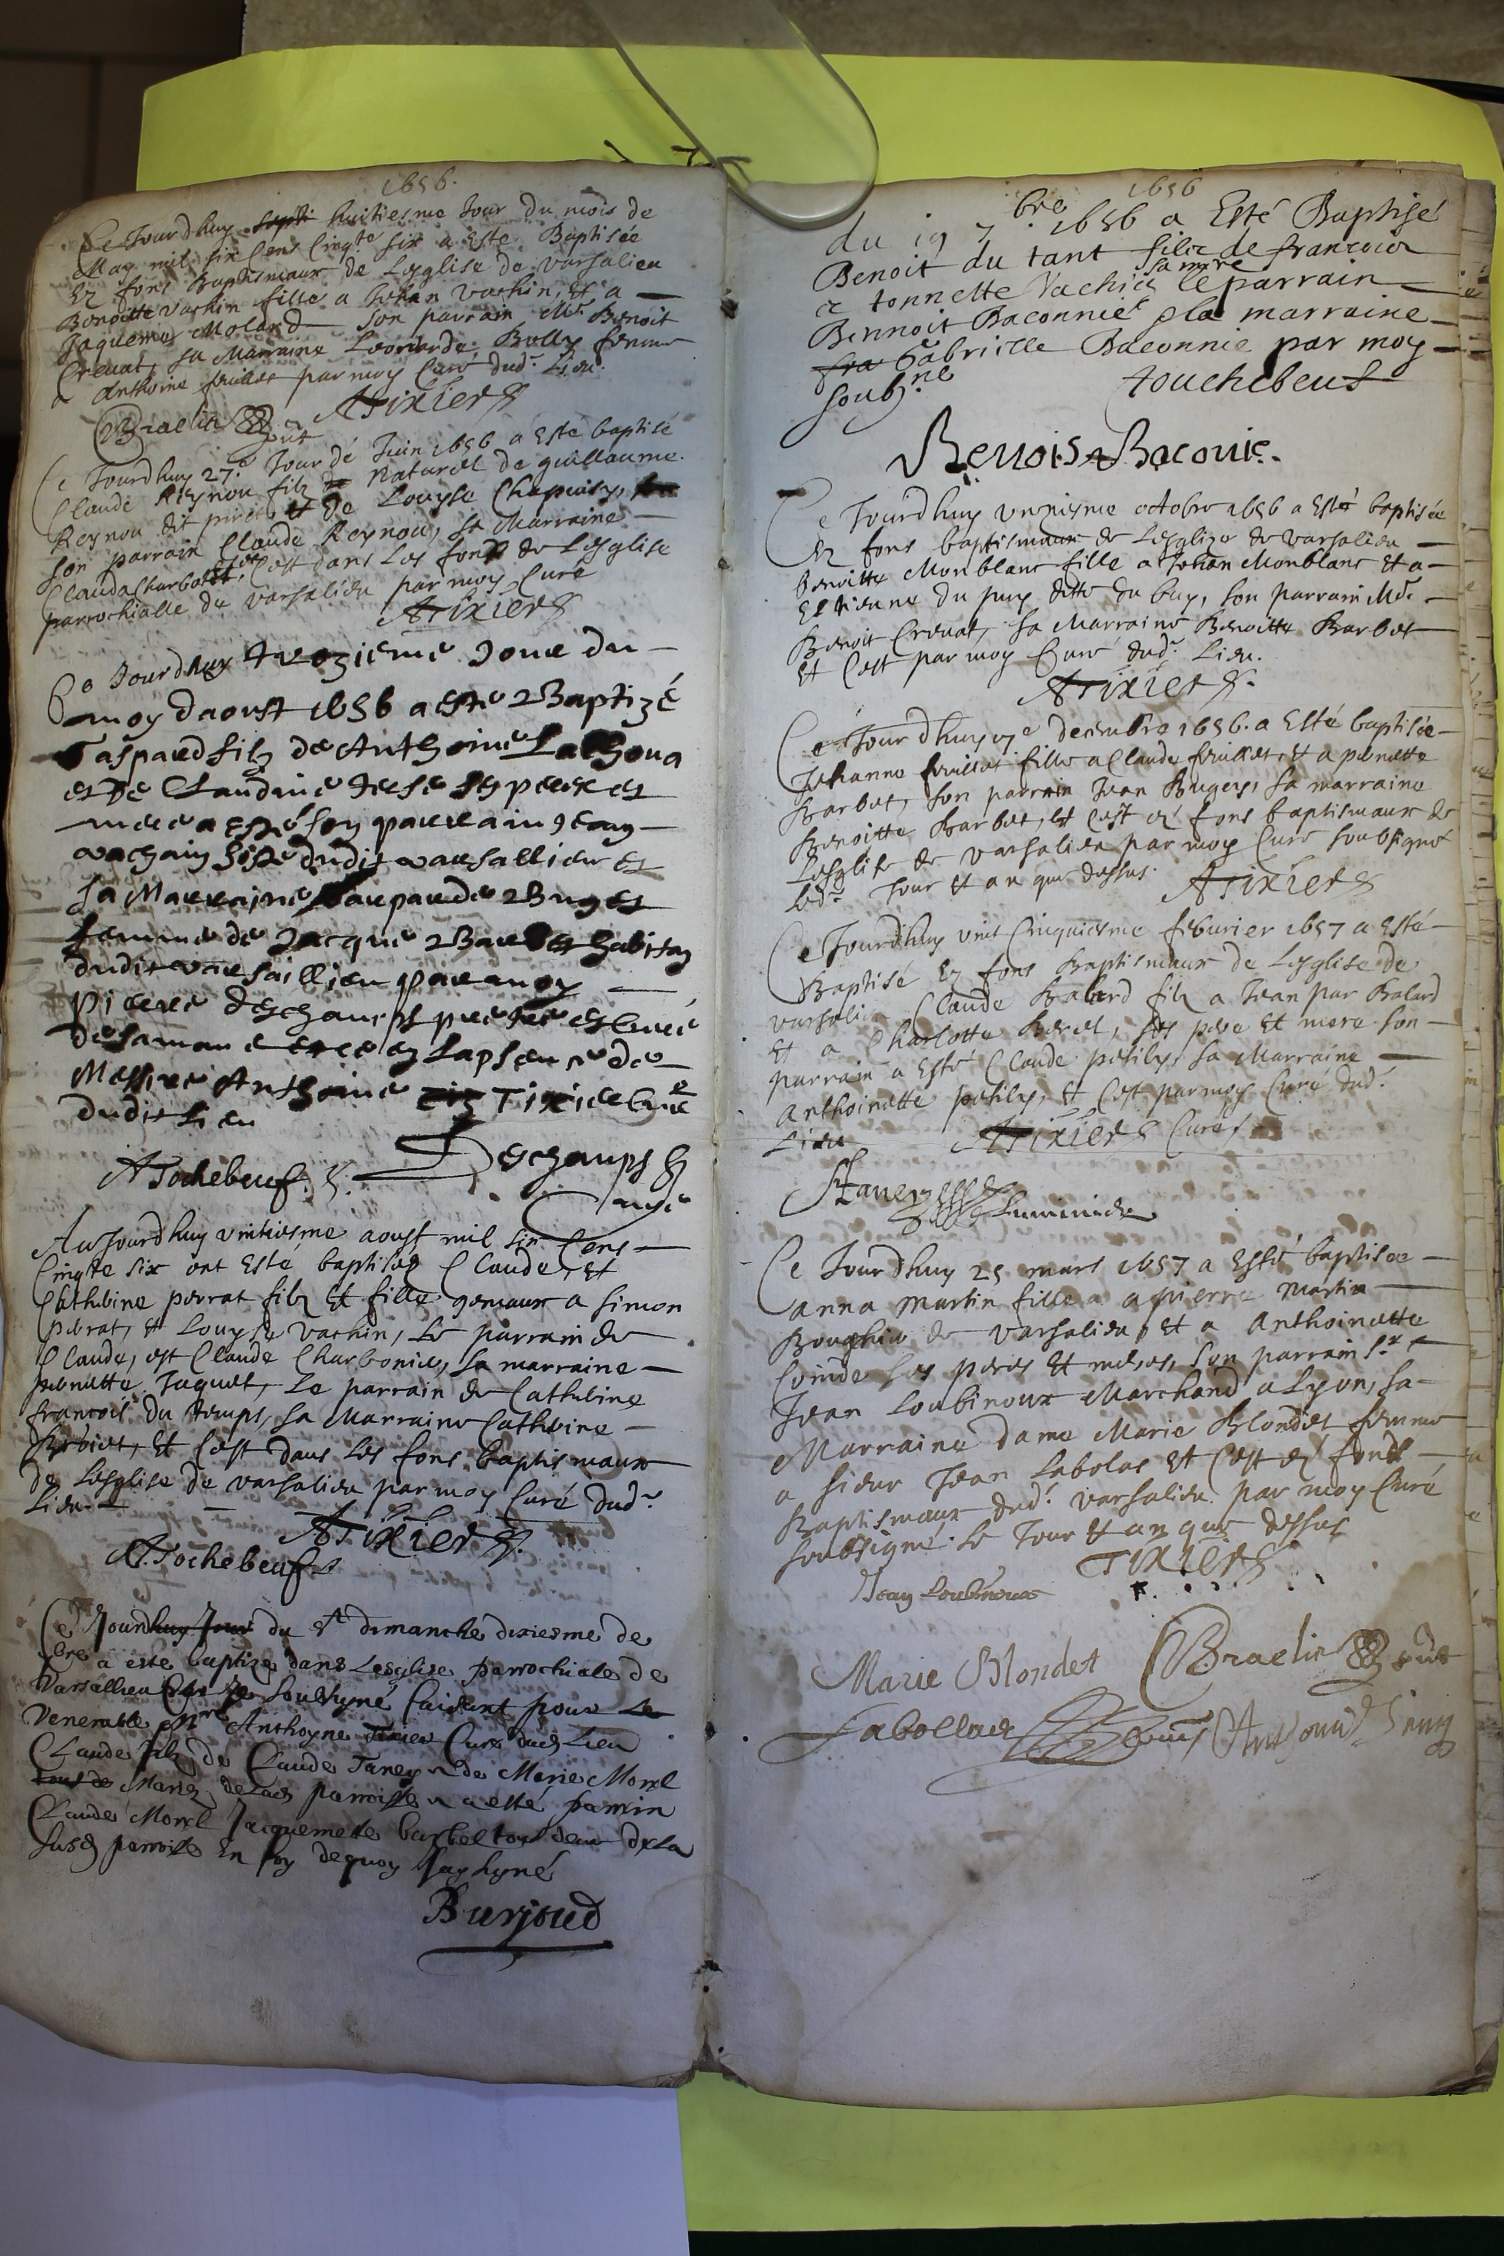 1656.
Ce Jourdhuy huitiesme Jour du mois de
May mil six Cens Cinqte six a Este Baptisée
Es fons Baptismaux de Lesglise de Varsalieu
Benoitte Vachin fille a Jehan Vachin, Et a
Jaquema Molard Son parrain Mr. Benoit
Crevat, sa Marraine Leonarde Bully femme
a Anthoine par moy Curé dud. Lieu.
ATixier
Ce Jourdhuy 27.e Jour de Juin 1656 a Este baptisé
Claude Reynou filz Naturel de guillaume
Reynou dit et De Louyse Chapuisy,
son parrain Claude Reynou, sa Marraine
Clauda Charbo C'est dans les fons de Lesglise
parrochialle de Varsalieu par moy Curé
ATixier
Ce Jourdhuy trezieme Jour du
moy daoust 1656 a este Baptizé
Gaspard filz de Anthoine
et de Claudine ses pere et
mere a esté son parrain Jean
vachain hoste dudit varsallieu et
sa Marraine Gasparde Buget
femme de Jacque habitan
dudit varsaillieu par moy
Pierre deschamps prestre et Curé
de en Lapsence de
Messire Anthoine Tixie Curé
dudit Lieu
ATochebeuf. Deschamps
Curé
Aujourdhuy vintiesme aoust mil six Cens
Cinqte six ont Esté baptisez Claude, Et
Catherine perrat filz Et fille gemaux a Simon
perrat, et Louyse Vachin, Le parrain de
Claude, est Claude Charbonie, sa marraine
pernette Jaquet, Le parrain de Catherine
francois du temps, sa Marraine Catherine
Et C'est dans les fons baptismaux
de Lesglise de varsalieu par moy Curé dud.
Lieu.
ATixier
A.Tochebeuf
Ce Jourdhuy Jour du St dimanche dixiesme de
bre a este baptize dans Lesglise parrochiale de
Varsallieu par Je soubsyné faisant pour Le
Venerable Mre Anthoyne Tixier Curé dud Lieu
Claude filz de Claude Taney et de Marie Morel
Mariez de Lad parroisse et a esté parrin
Claude Morel Jacquemette barbet tous deux de La
susd parroisse En foy dequoy Jay syné
Burjoud
1656
du 19 7.bre 1656 a Esté Baptisé
Benoit du tant filz de francois
et tonnette Vachin sa mere le parrain
Bennoit Baconnié et la marraine
Gabrielle Baconnie par moy
soubz.né touchebeuf
Benois Baconie.
Ce Jourdhuy octobre 1656 a Esté baptisée
Es fons baptismaux de Lesglize de varsalieu
Benoitte Monblanc fille a Johan Monblanc et a
Estienne du puy ditte du buy, son parrain Mre
Benoit Crevat, sa Marraine Benoitte Barbet
Et C'est par moy Curé dud. Lieu.
ATixier
Ce Jourdhuy decembre 1656. a Esté baptisée
Jehanne fille a Claude et a pernette
Barbet, son parrain Jean Bugey, sa marraine
Benoitte Barbet, et C'est es fons baptismaux de
Lesglise de varsalieu par moy Curé soubsigné
Led. Jour Et an que dessus. ATixier
Ce Jourdhuy vint Cinquiesme febvrier 1657 a Esté
Baptisé Es fons Baptismaux de Lesglise de
varsalieu Claude Balard filz a Jean par Balard
Et a Charlotte ses pere Et mere son
parrain a Esté Claude petily, sa Marraine
Anthoinette petily, Et C'est par moy Curé dud.
Lieu ATixier Curé
Ce Jourdhuy 25 mars 1657 a Esté baptisée
anna Martin fille a pierre Martin
de varsalieu, et a Anthoinette
Coinde ses peres Et meres, son parrain Sr
Jean Loubinoux Marchand a Lyon, sa
Marraine dame Marie Blondet femme
a sieur Jean Labolas Et C'est es fonds
Baptismaux dud. varsalieu par moy Curé
soubsigné. Le Jour et an que dessus
Tixier
Jean Loubinoux
Marie Blondet